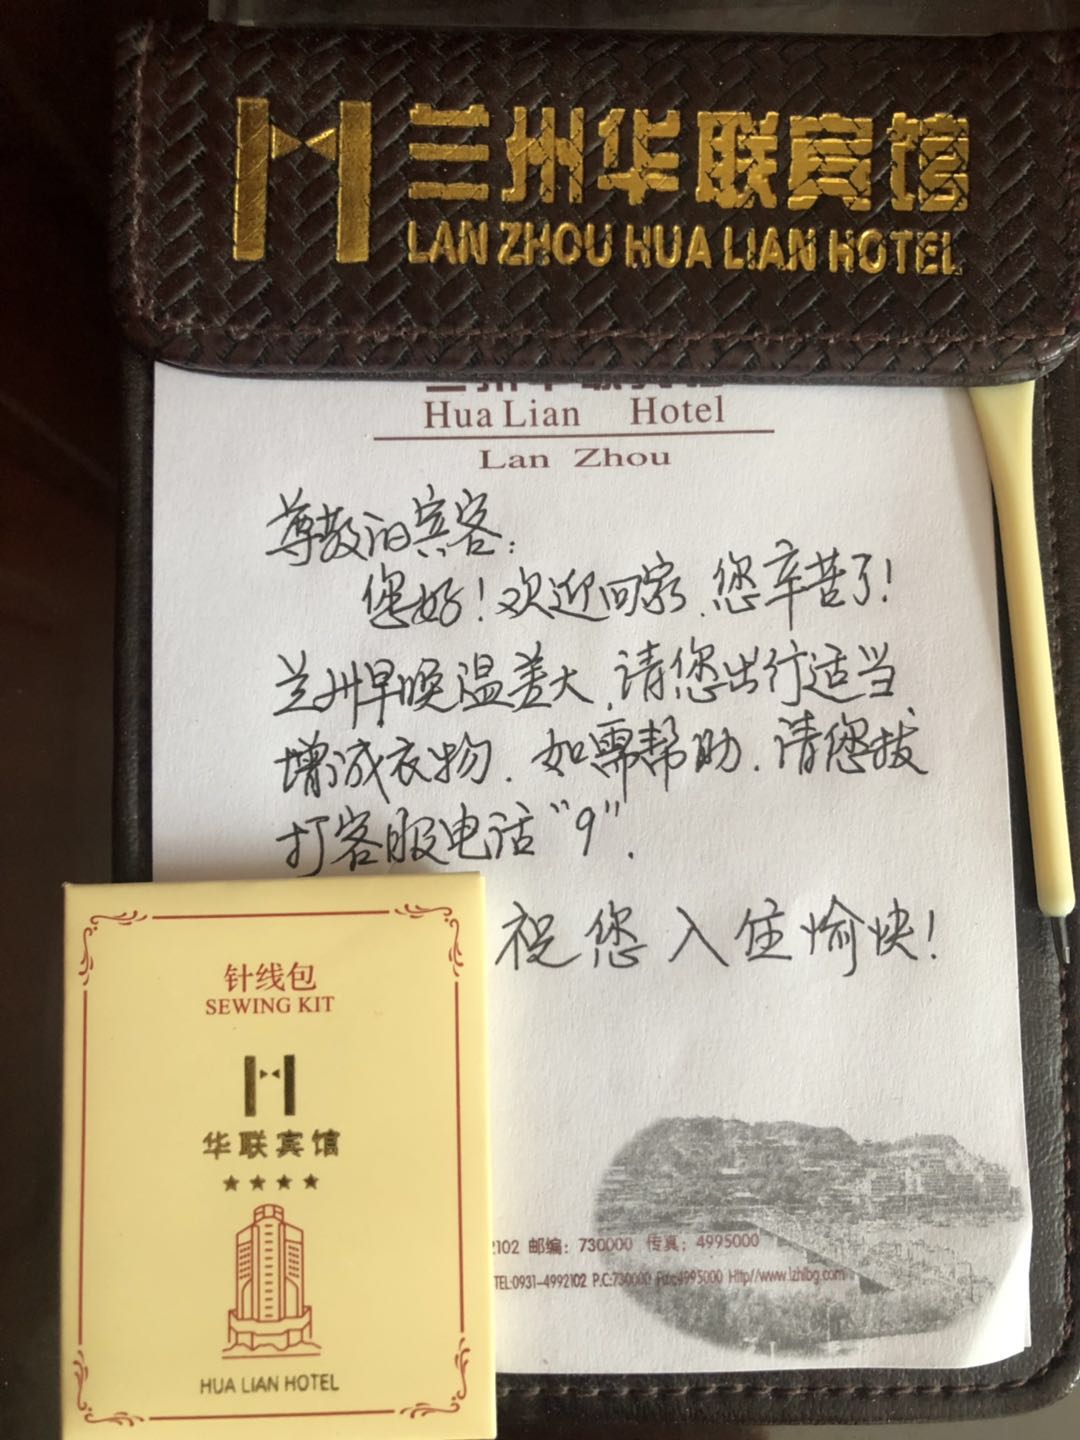 兰州华联宾馆
LAN ZHOU HUA LIAN HOTEL
兰州华联宾馆
Hua Lian Hotel
Lan Zhou
尊敬的宾客:
您好!欢迎回家,您辛苦了!
兰州早晚温差大,请您出行适当
增减衣物.如需帮助.请您拔
打客服电话"9".
祝您入住愉快!
针线包
SEWING KIT
华联宾馆
★★★★
HUA LIAN HOTEL
2102 邮编:730000 传真:4995000
TEL:0931-4992102 P.C:730000 Fax:4995000 Http//www.lzhlbg.com